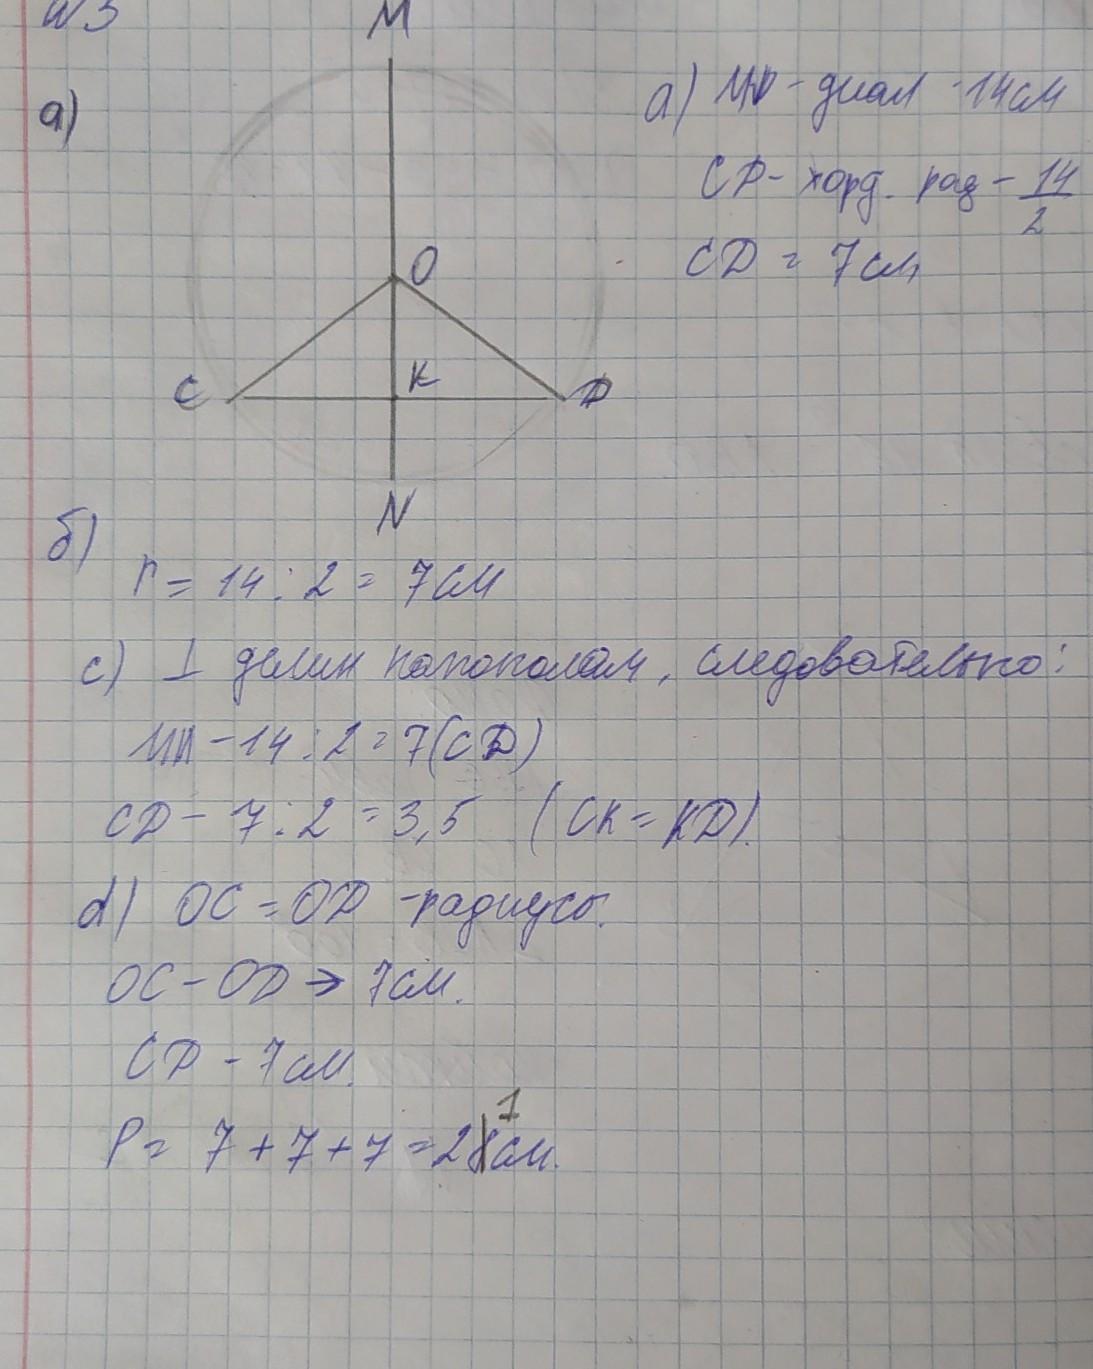 N3
M
а)
O
K
C
D
N
а) MN - диам - 14см
CD - хорд. рад - 14/2
CD = 7см
б)
r = 14 : 2 = 7см
c) ⊥ делит пополам, следовательно:
MN - 14 : 2 = 7 (CD)
CD - 7 : 2 = 3,5 (CK = KD).
d) OC = OD - радиусы.
OC - OD → 7см.
CD - 7см.
P = 7 + 7 + 7 = 21см.